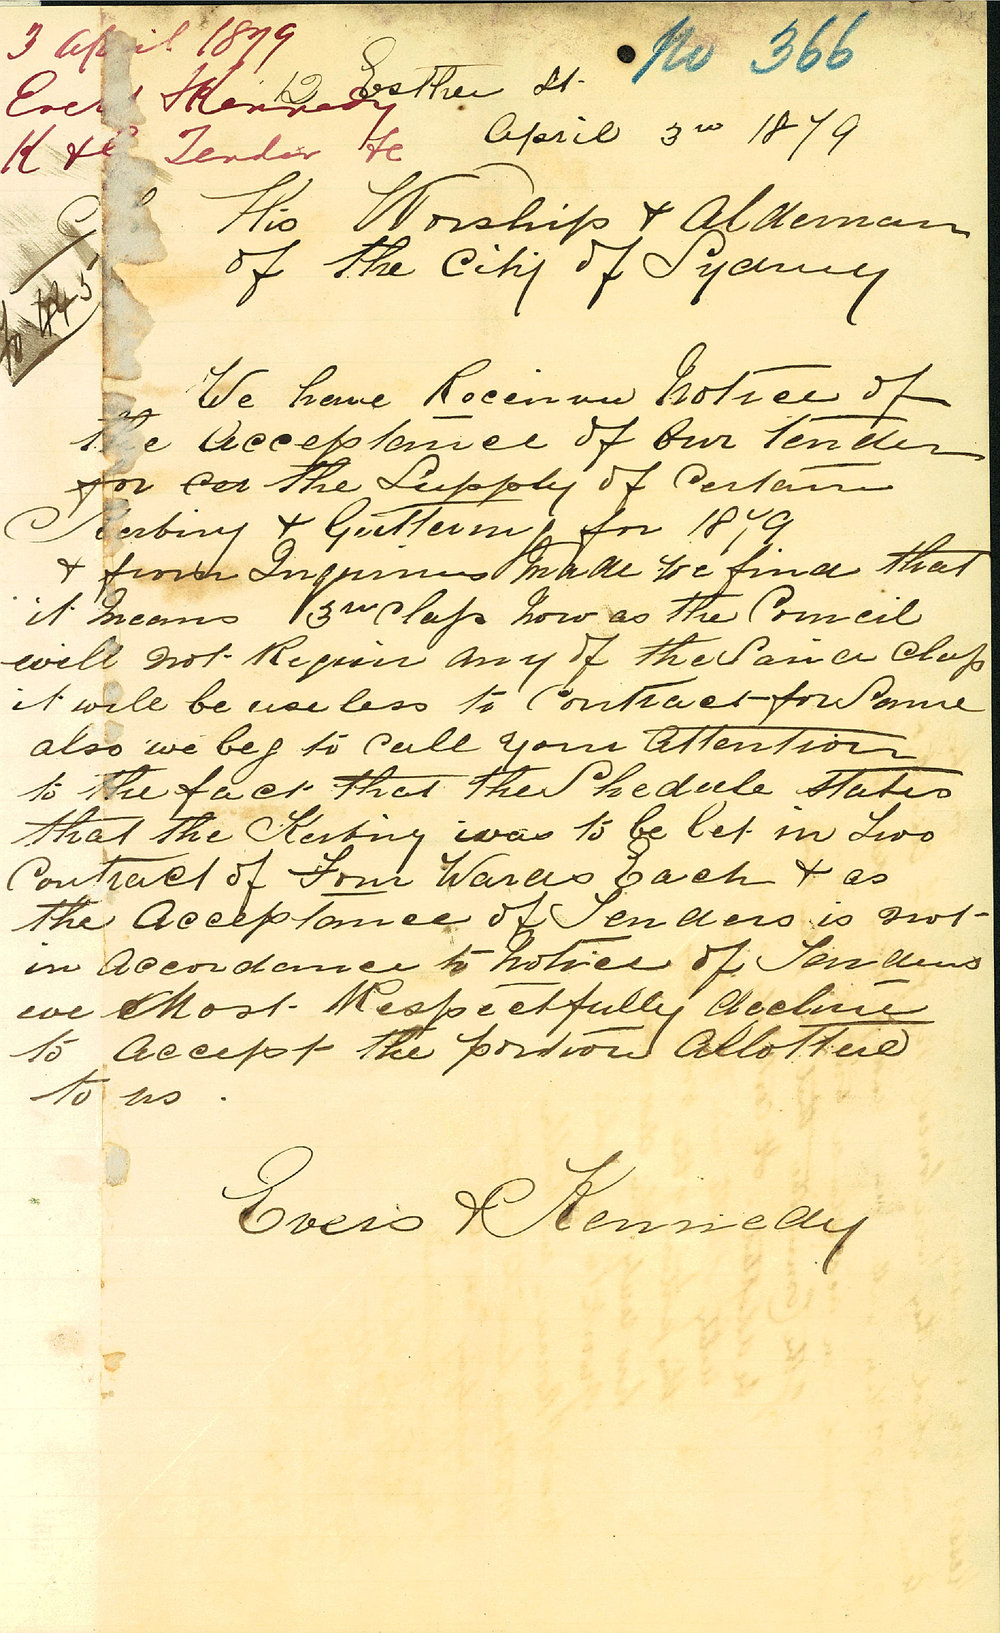 3 April 1879
No 366
Evers & Kennedy
12 Esther St
K & G Tender &c
April 3rd 1879
His Worship & Alderman
of the City of Sydney
No 445
We have Received Notice of
the Acceptance of Our Tender
for the Supply of Certain
Kerbing & Guttering for 1879
& from Inquiries Made we find that
it Means 3rd Class Now as the Council
will not Require any of the Said Class
it will be useless to Contract for Same
also we beg to Call Your Attention
to the fact that the Shedule states
that the Kerbing was to be let in two
Contract of Four Wards Each & as
the Acceptance of Tenders is not
in Accordance to Notice of Tenders
we Most Respectfully decline
to Accept the portion Allotted
to us .
Evers & Kennedy